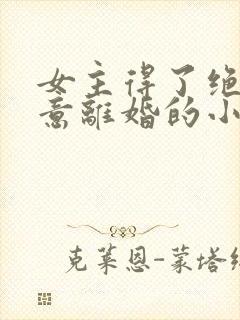 女主得了绝
意離婚的小
克莱恩-蒙塔纳